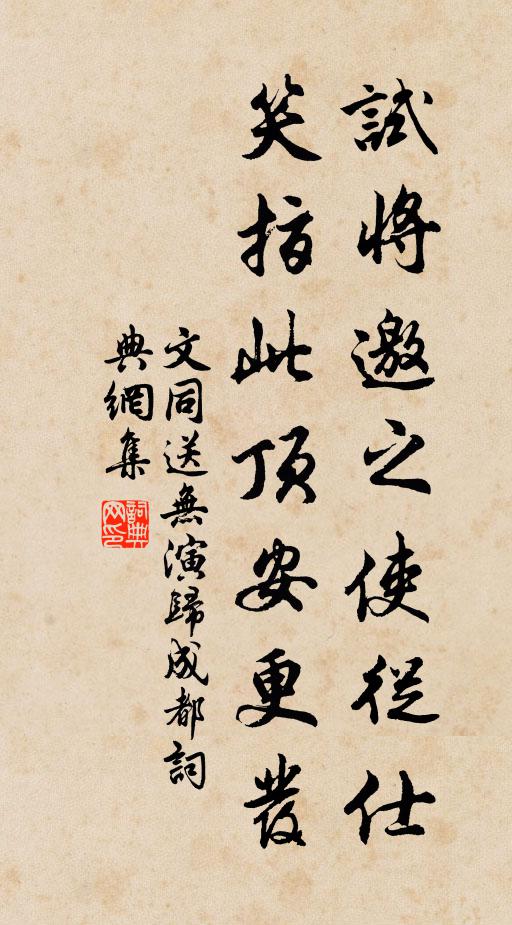 試將邀之使從仕
笑指此頂安更發
文同送無演歸成都詞
典網集
詞典網印